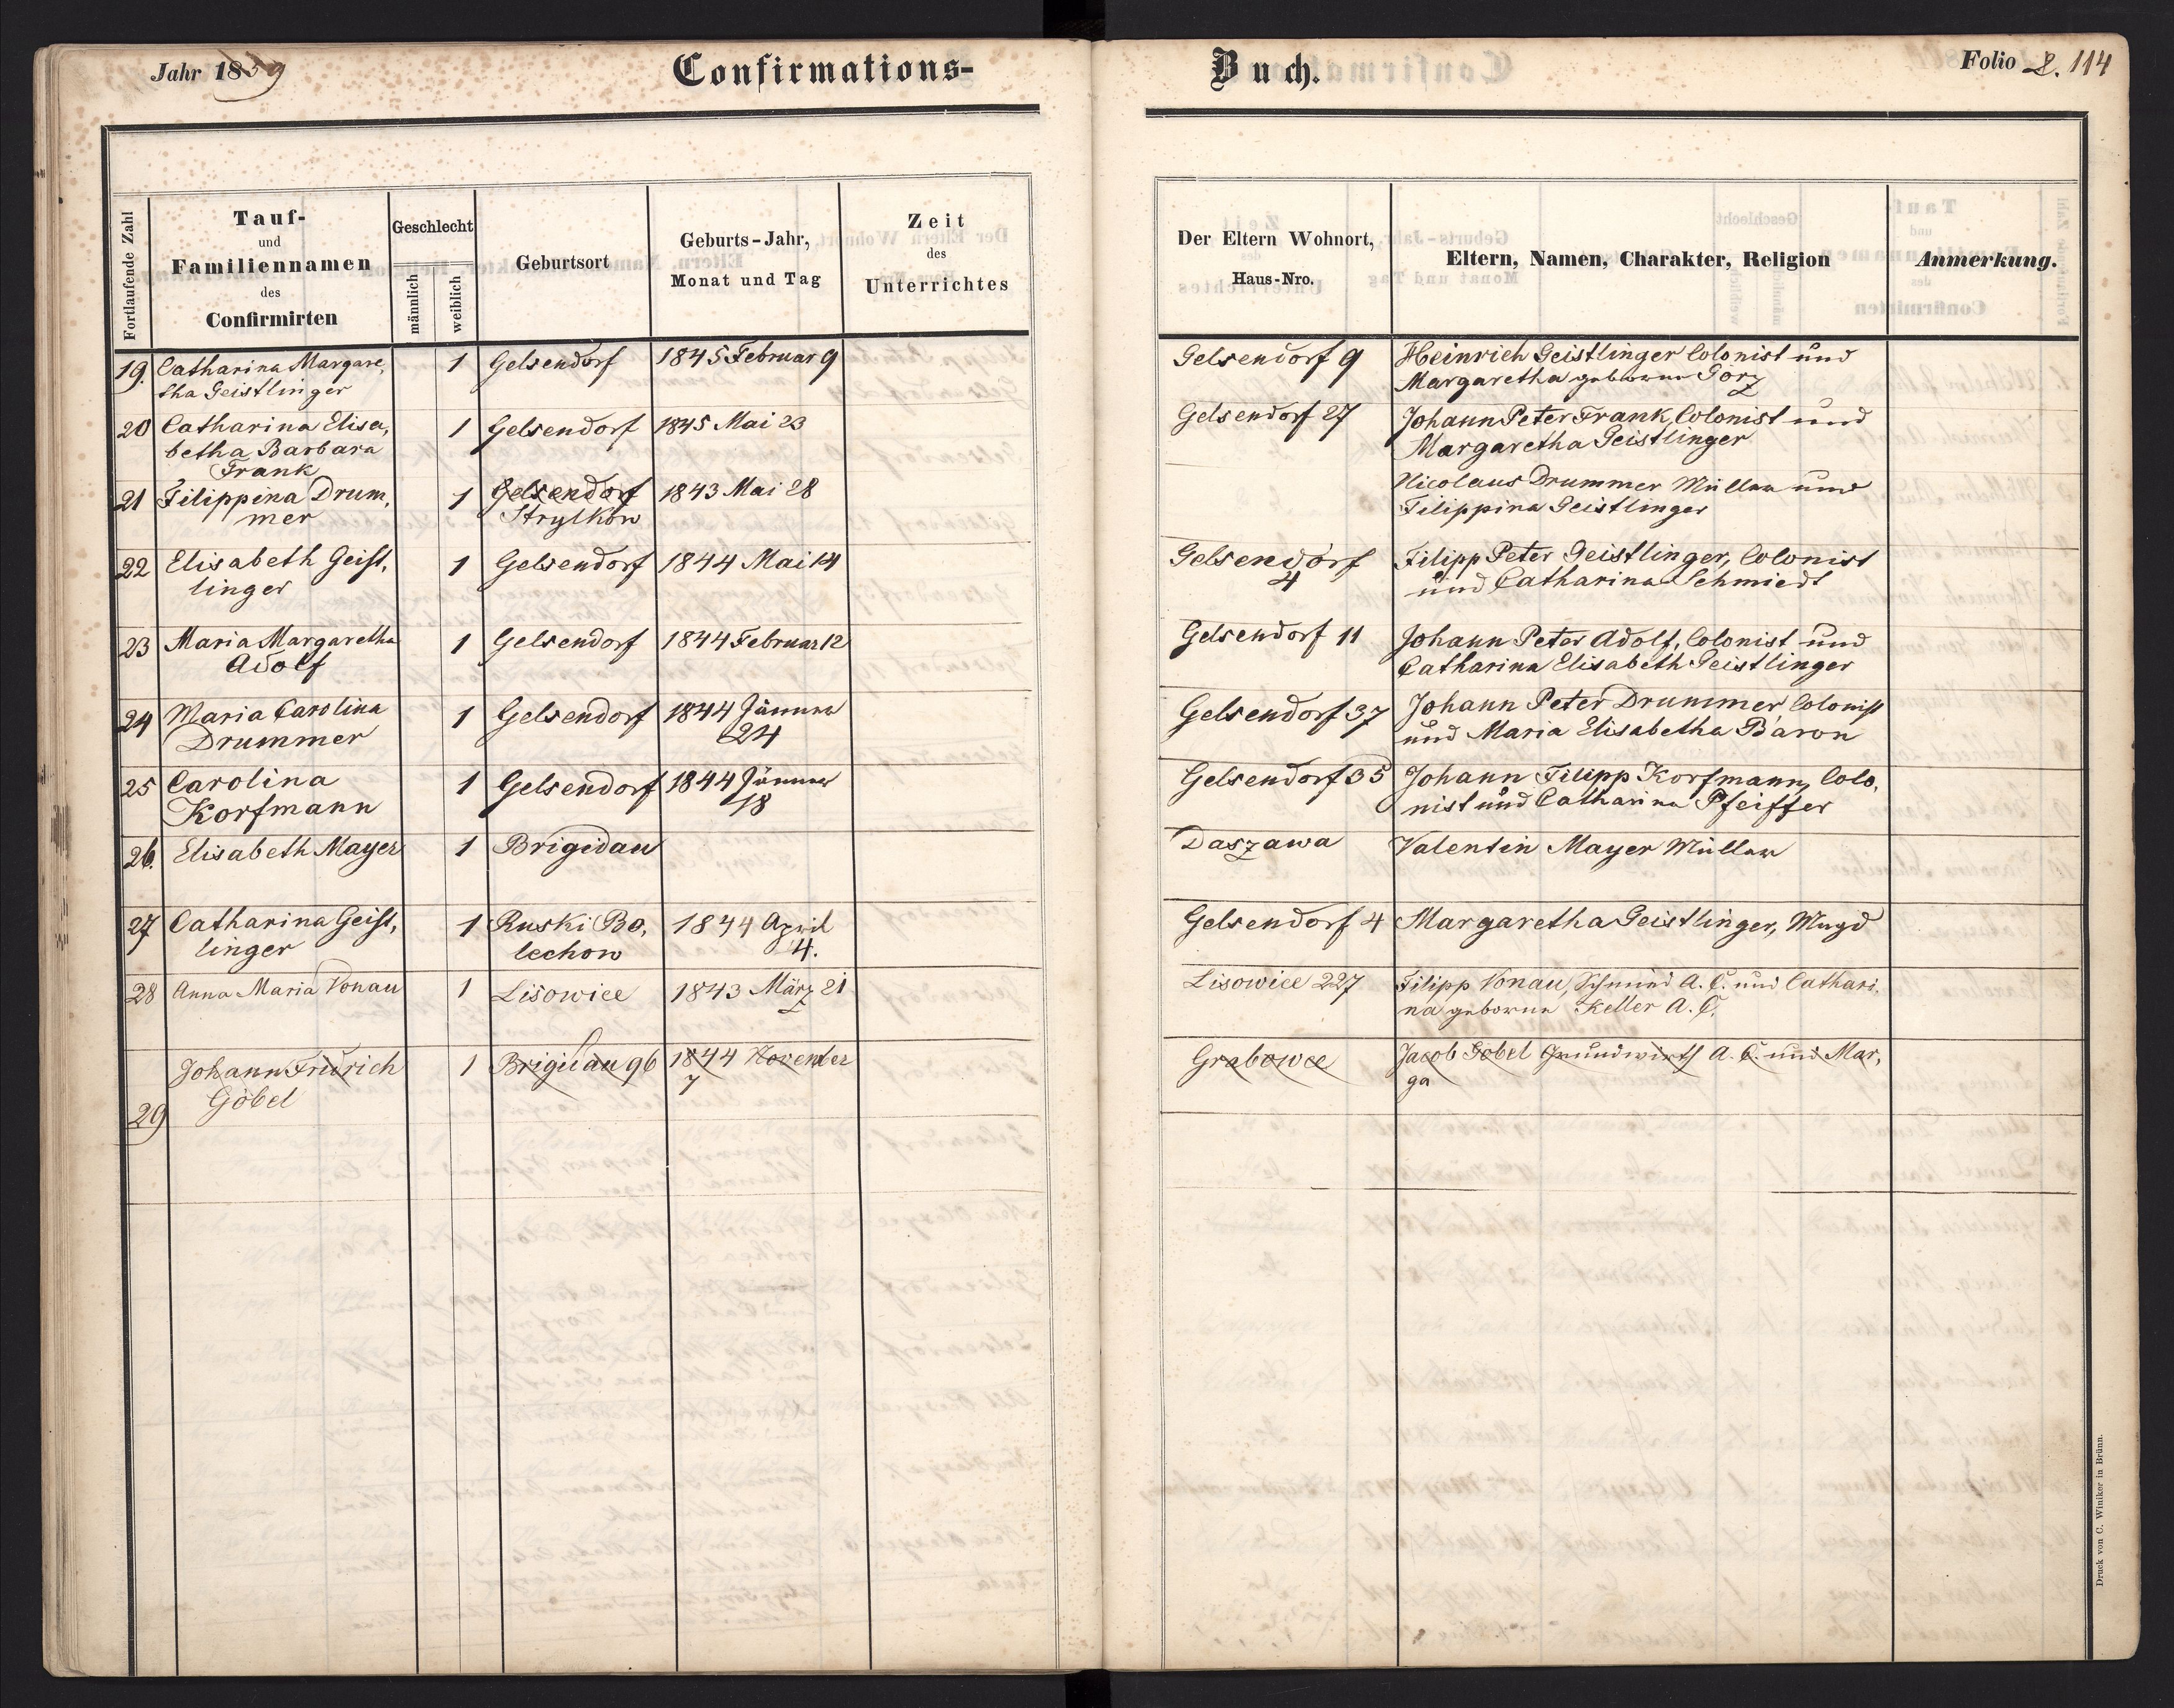 Jahr 1859
Confirmations-
Buch.
Folio 2. 114
Fortlaufende Zahl
Tauf-
und
Familiennamen
des
Confirmirten
Geschlecht
männlich
weiblich
Geburtsort
Geburts-Jahr,
Monat und Tag
Zeit
des
Unterrichtes
Der Eltern Wohnort,
Haus-Nro.
Eltern, Namen, Charakter, Religion
Anmerkung.
19. Catharina Margare, 1 Gelsendorf 1845 Februar 9 Gelsendorf 9 Heinrich Geistlinger Colonist und
tha Geistlinger Margaretha geborne Görz
20 Catharina Elisa, 1 Gelsendorf 1845 Mai 23 Gelsendorf 27 Johann Peter Frank, Colonist und
betha Barbara Margaretha Geistlinger
Frank
21 Filippina Drum, 1 Gelsendorf 1843 Mai 28 Nicolaus Drummer Müller und
mer Strylkow Filippina Geistlinger
22 Elisabeth Geist, 1 Gelsendorf 1844 Mai 14 Gelsendorf Filipp Peter Geistlinger, Colonist
linger 4 und Catharina Schmiedt
23 Maria Margaretha 1 Gelsendorf 1844 Februar 12 Gelsendorf 11 Johann Peter Adolf, Colonist und
Adolf Catharina Elisabeth Geistlinger
24 Maria Carolina 1 Gelsendorf 1844 Jänner Gelsendorf 37 Johann Peter Drummer, Colonist
Drummer 24 und Maria Elisabetha Baron
25 Carolina 1 Gelsendorf 1844 Jänner Gelsendorf 35 Johann Filipp Korfmann, Colo,
Korfmann 18 nist und Catharina Pfeiffer
26. Elisabeth Mayer 1 Brigidau Daszawa Valentin Mayer Müller
27 Catharina Geist, 1 Ruski Bo, 1844 April Gelsendorf 4 Margaretha Geistlinger, Magd
linger lechow 4.
28 Anna Maria Vonau 1 Lisowice 1843 März 21 Lisowice 227 Filipp Vonau, Schmied A. C. und Cathari,
na geborne Keller A. C.
Johann Fridrich 1 Brigidau 96 1844 November Grabowce Jacob Göbel Grundwirth A. C. und Mar,
Göbel 7 ga
29
Druck von C. Winiker in Brünn.